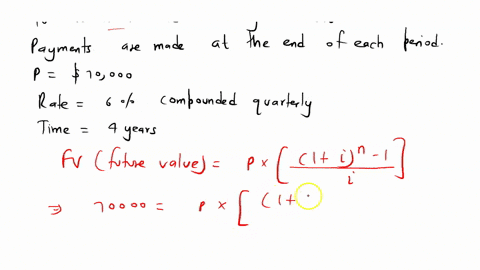 Payments are made at the end of each period.
P = $70,000
Rate = 6% compounded quarterly
Time = 4 years
FV (future value) = P × [ (1+ i)^n - 1 / i ]
⇒ 70000 = P × [ (1+